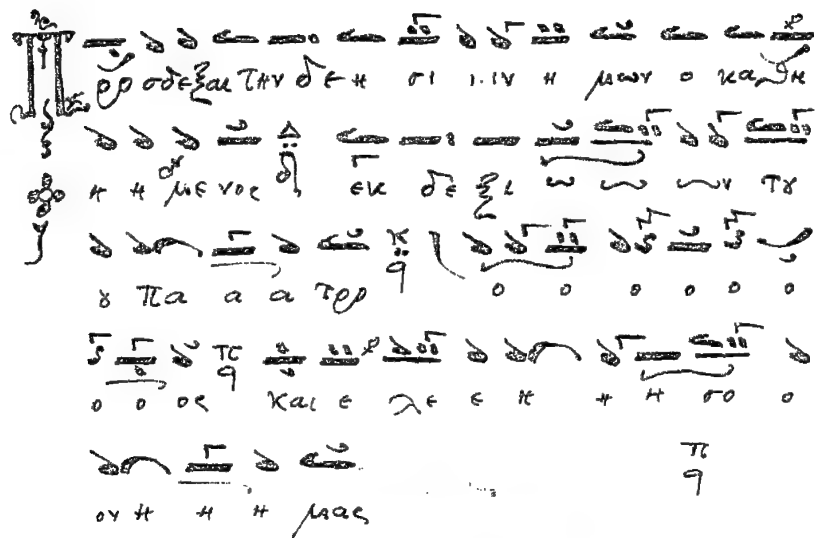 Προ σδε ξαι την δε η σι ι ιν η μων ο κα θη
η η με νος εκ δε ξι ω ω ων τȣ
ȣ πα α α τρο ο ο ο ο ο ο
ο ο ος και ε λε ε η η η σο ο
ον η η η μας